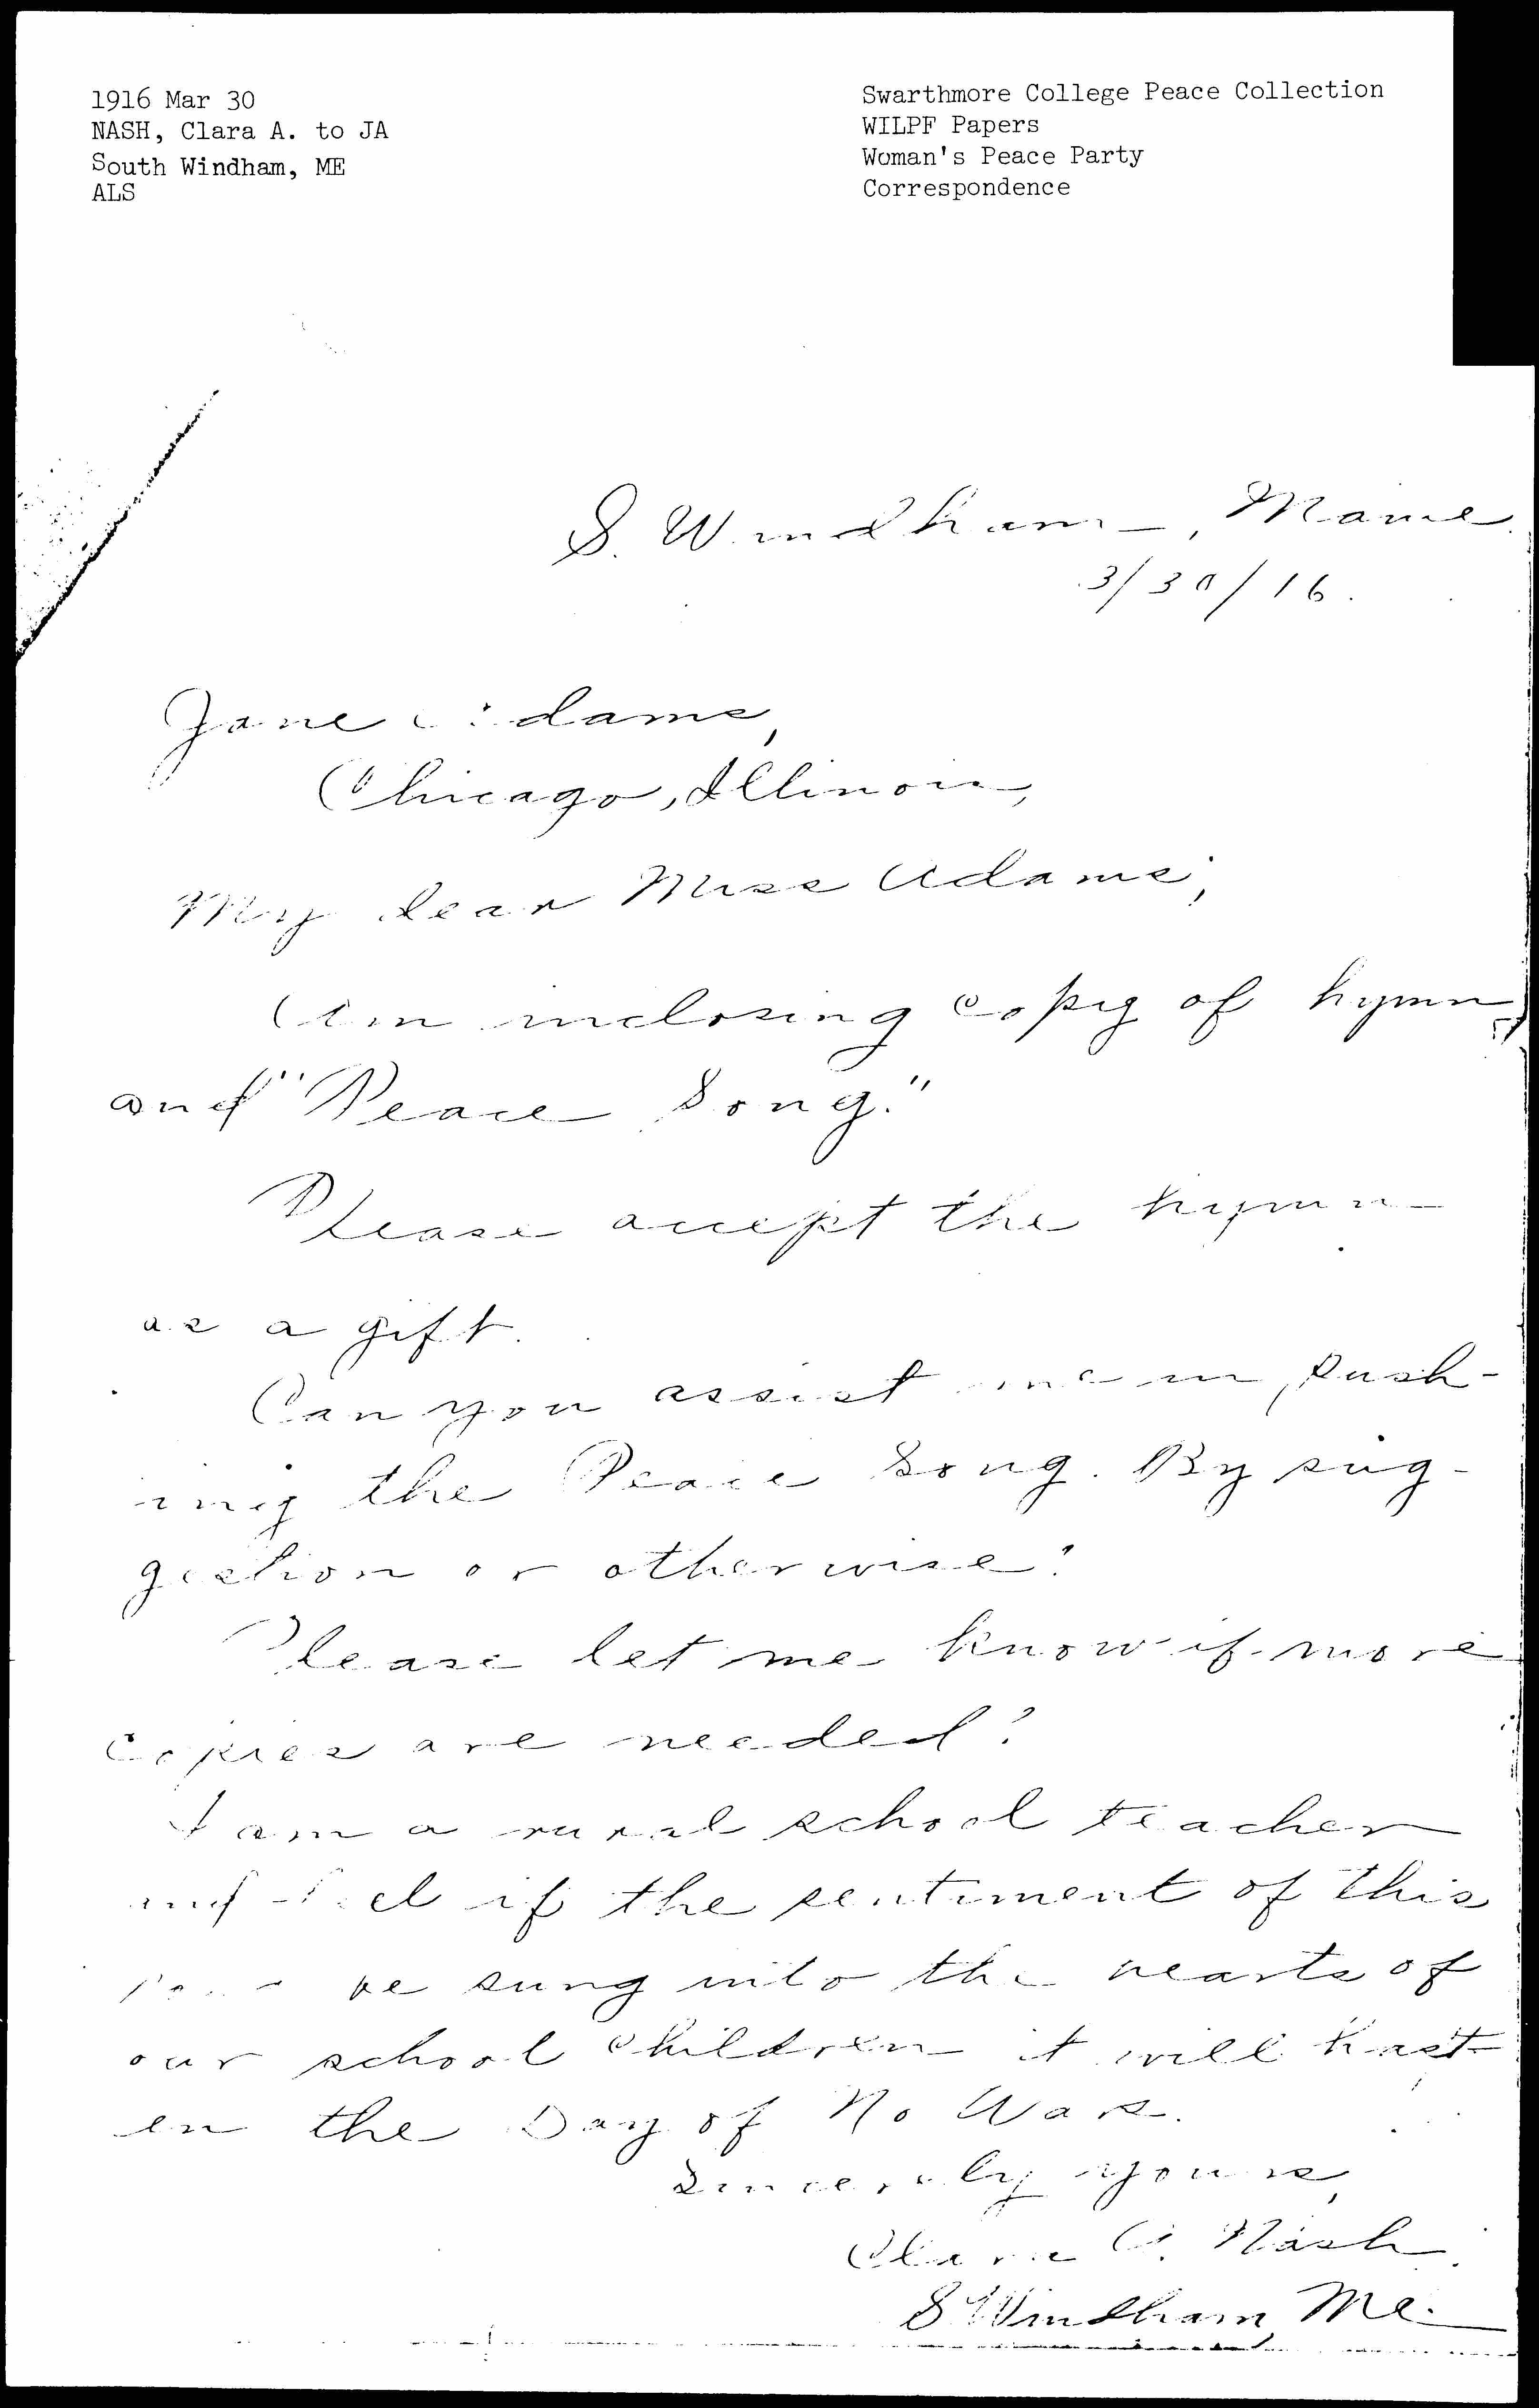 1916 Mar 30
NASH, Clara A. to JA
South Windham, ME
ALS
Swarthmore College Peace Collection
WILPF Papers
Woman's Peace Party
Correspondence
S. Windham, Maine.
3/30/16.
Jane Adams,
Chicago, Illinois,
My dear Miss Adams;
Am inclosing copy of hymn
and "Peace Song."
Please accept the hymn
as a gift.
Can you assist me in push-
ing the Peace Song. By sug-
gestion or otherwise?
Please let me know if more
copies are needed?
I am a rural school teacher
and feel if the sentiment of this
be sung into the hearts of
our school children it will hast-
en the Day of No War.
Sincerely yours,
Clara A. Nash.
S Windham, Me.